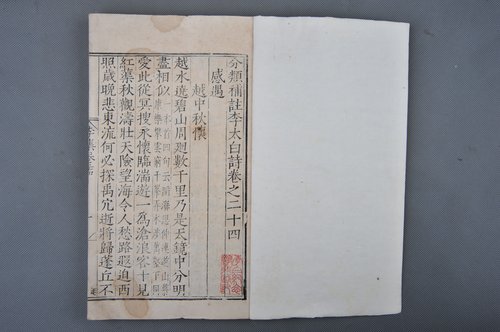 分類補註李太白詩卷之二十四
感遇
越中秋懷
越水遶碧山周廻數千里乃是天鏡中分明
盡相似
愛此從冥搜永懷臨湍遊一為滄浪客十見
紅蕖秋觀濤壯天險望海令人愁路遐迫西
照歲晚悲東流何必探禹穴逝將歸蓬丘不